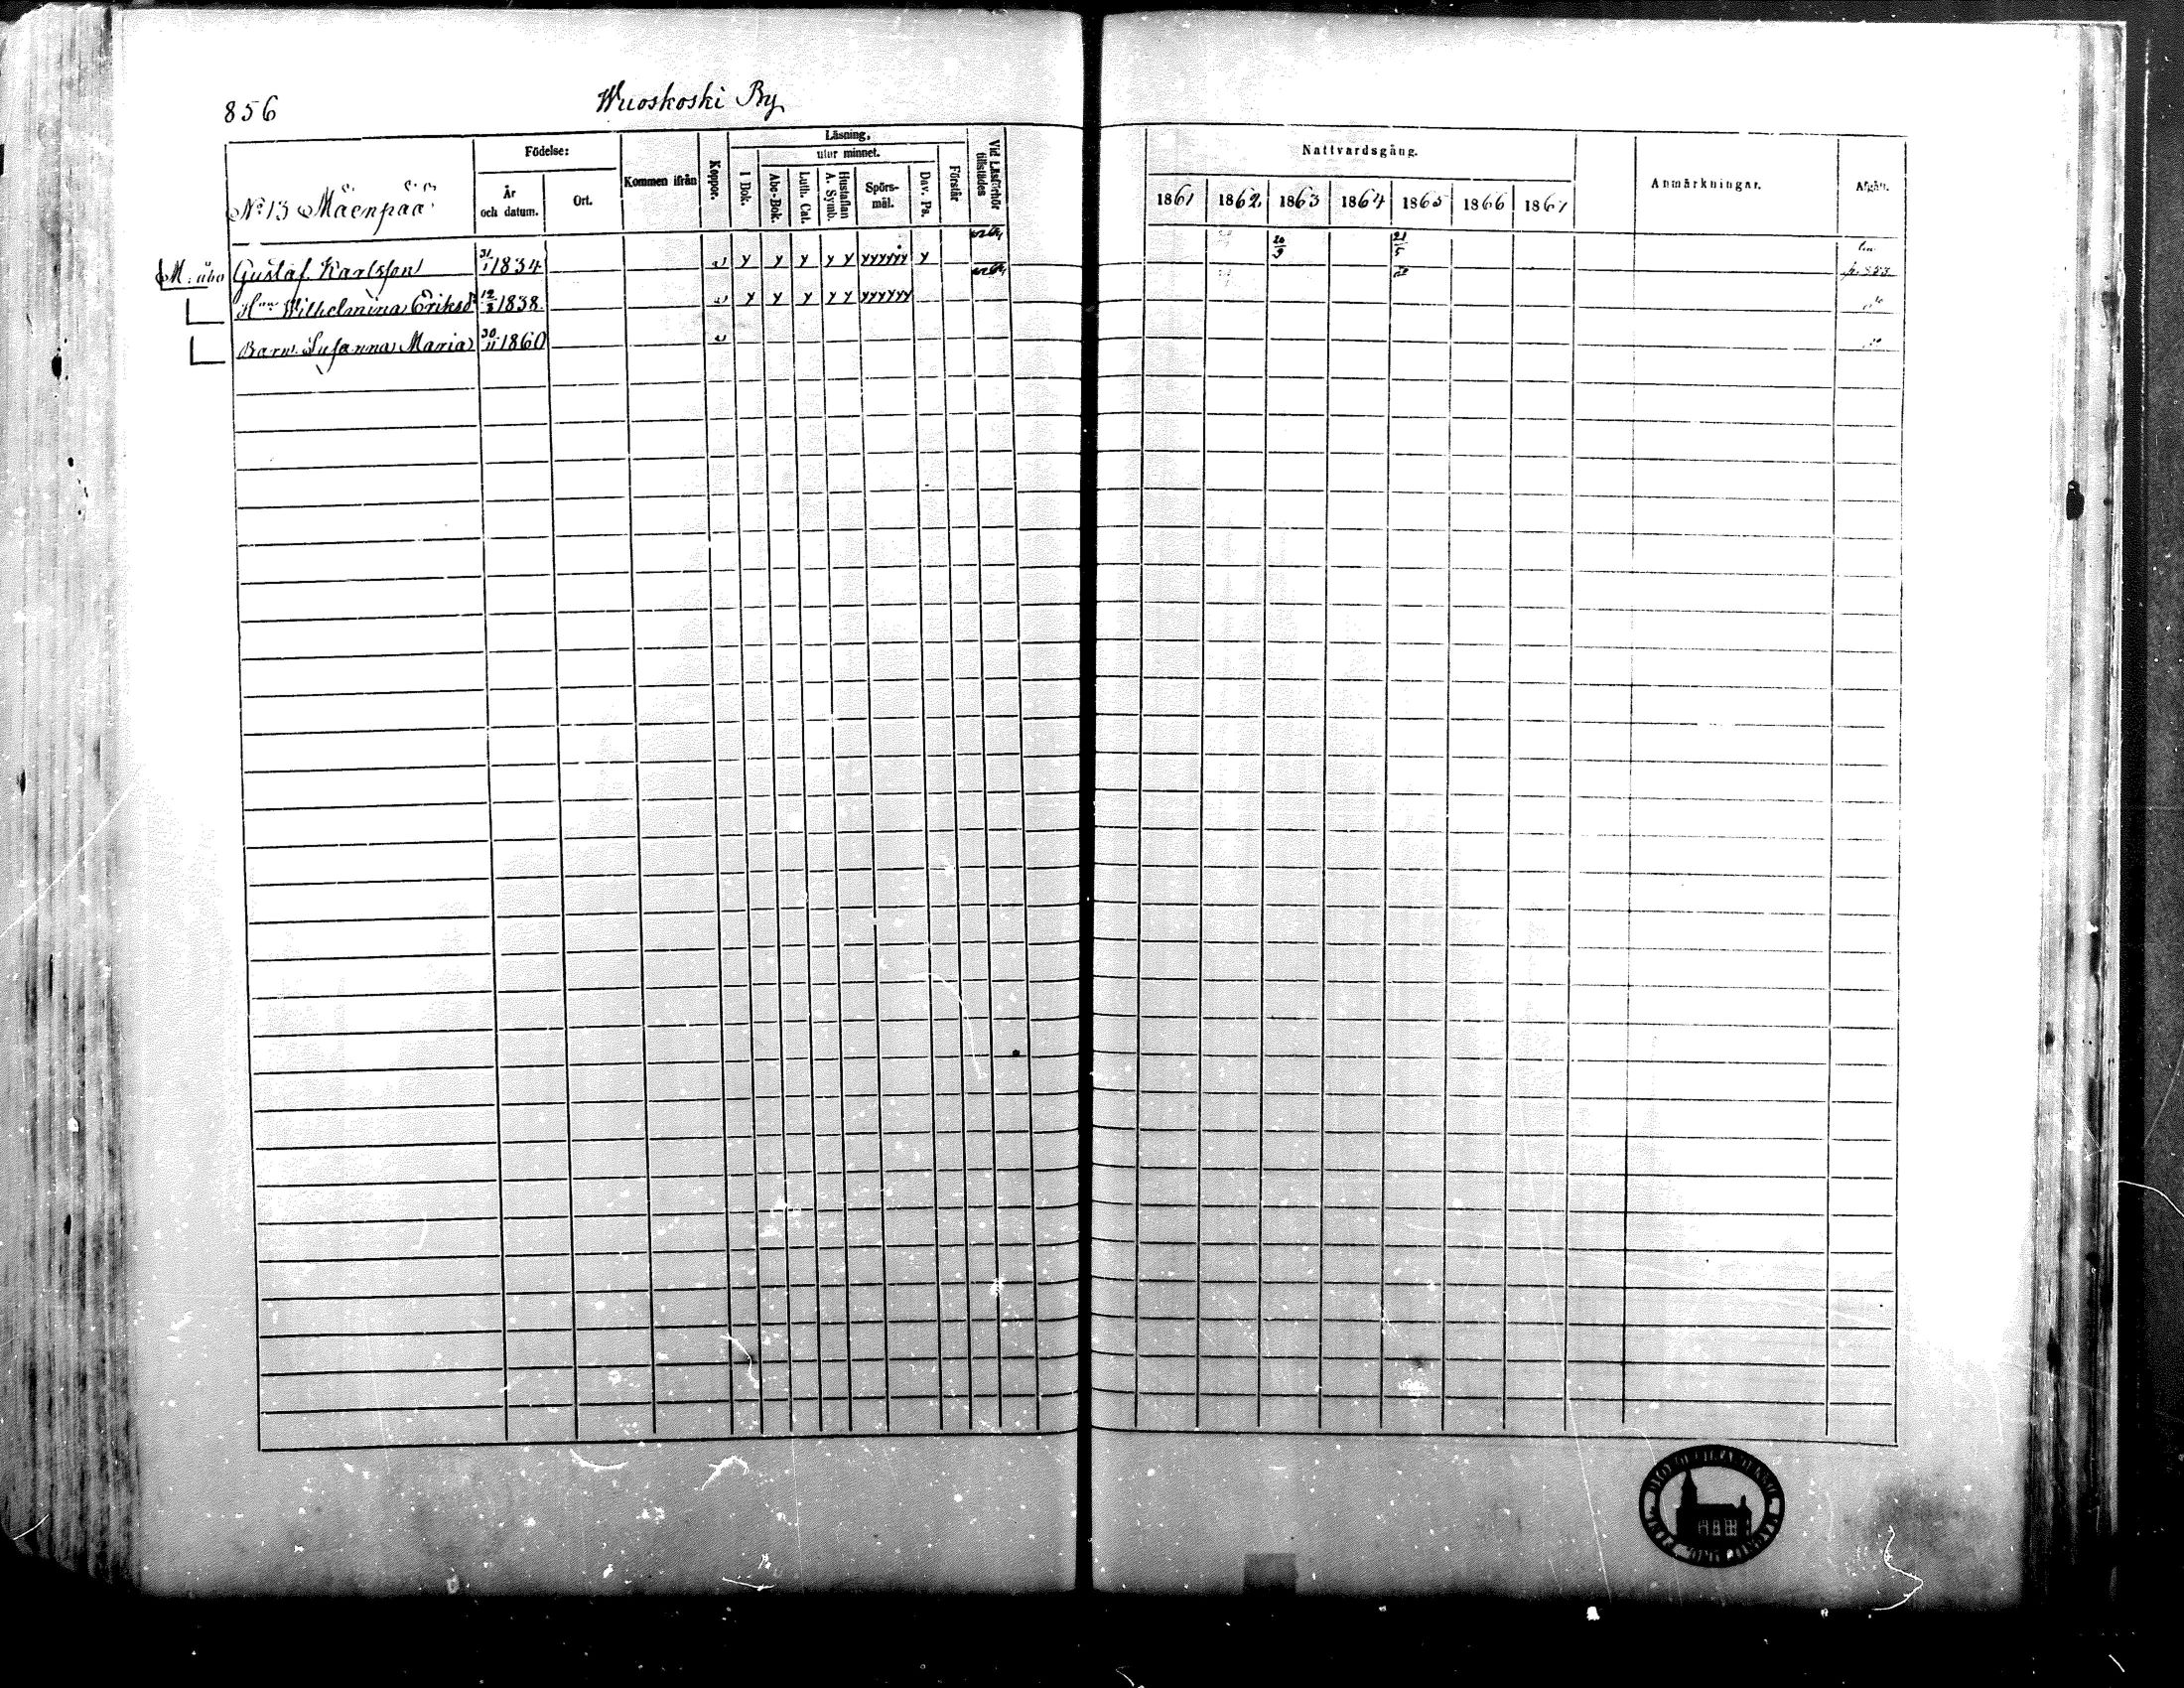 856 Wuoskoski By
No 13 Mäenpää
Födelse:
År och datum.
Ort.
Kommen ifrån
Koppor.
Läsning,
I Bok.
utur minnet.
Abc-Bok.
Luth. Cat.
Hustaflan A. Symb.
Spörsmål.
Dav. Ps.
Förstår
Vid Läsförhör tillstädes
Nattvardsgång.
1861 1862 1863 1864 1865 1866 1867
Anmärkningar.
Afgått.
M: åbo Gustaf Karlsson 31/1 1834 v y y y y y yyyyyy y 20/9 21/5
Hnu Wilhelmina Eriksdr 12/3 1838 v y y y y y yyyyyy
Barn: Susanna Maria 30/11 1860 v